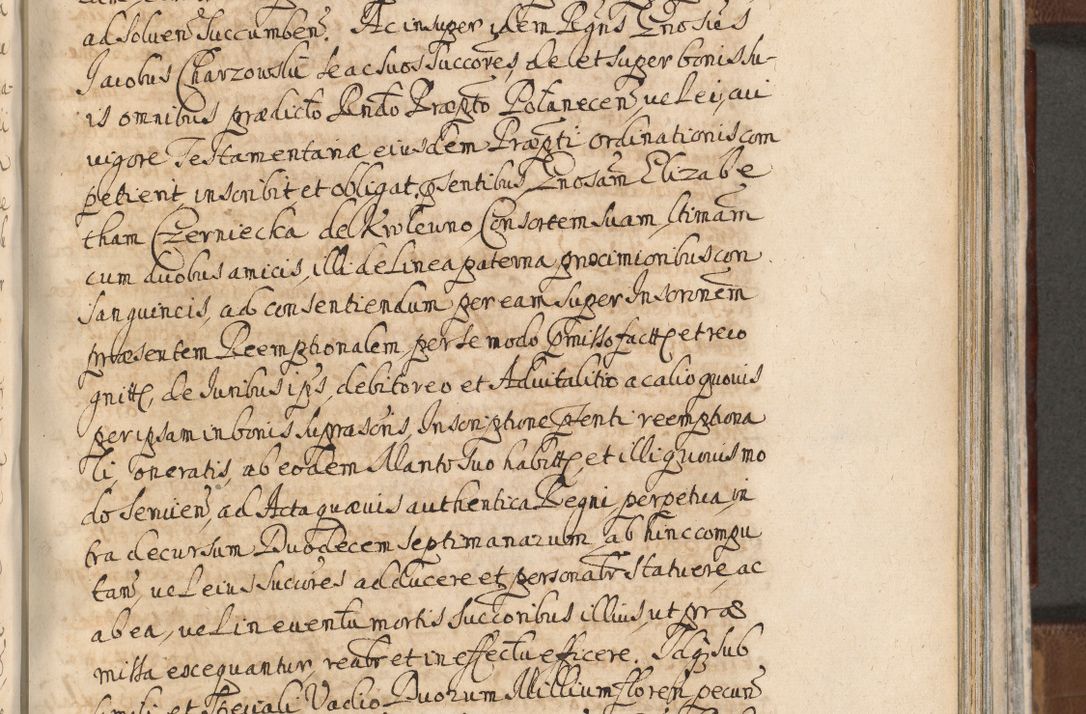 ad Solven Succumben. Ac insuper idem Rgns Gnosus
Jacobus Charzowski se ac suos succores, de et super bonis su-
is omnibus prædicto Rendo Præpto Potanecen, vel ei, cui
vigore Testamentariæ eiusdem Præpti ordinationis com
petient, inscribit et obligat, psentibus Gnosam Elizabe
tham Czerniecka de Kwleuno, Consortem suam, ltimam
cum duobus amicis, illi de Linea paterna proximioribus con
sanguineis, ad consentiendum per eam super Inscronem
præsentem Reemptionalem, per se modo pmisso factt et reco
gnitt, de Juribus ipsis, debitoreo et Advitalitio ac alio quovis
per ipsam in bonis suprascris, Inscriptione psenti reemptiona
li, oneratis, ab eodem Marito suo habitt, et illi quovis mo
do servien, ad Acta quævis authentica Regni, perpetua, in
tra decursum Duodecem septimanarum ab hinc compu
tan, vel eius succores adducere et personatr statuere, ac
ab ea, vel in eventu mortis succoribus illius, ut præ
missa exequantur, reatr et in effectu efficere. Idq sub
simili et speciali Vadio Duorum Millium floren pecun